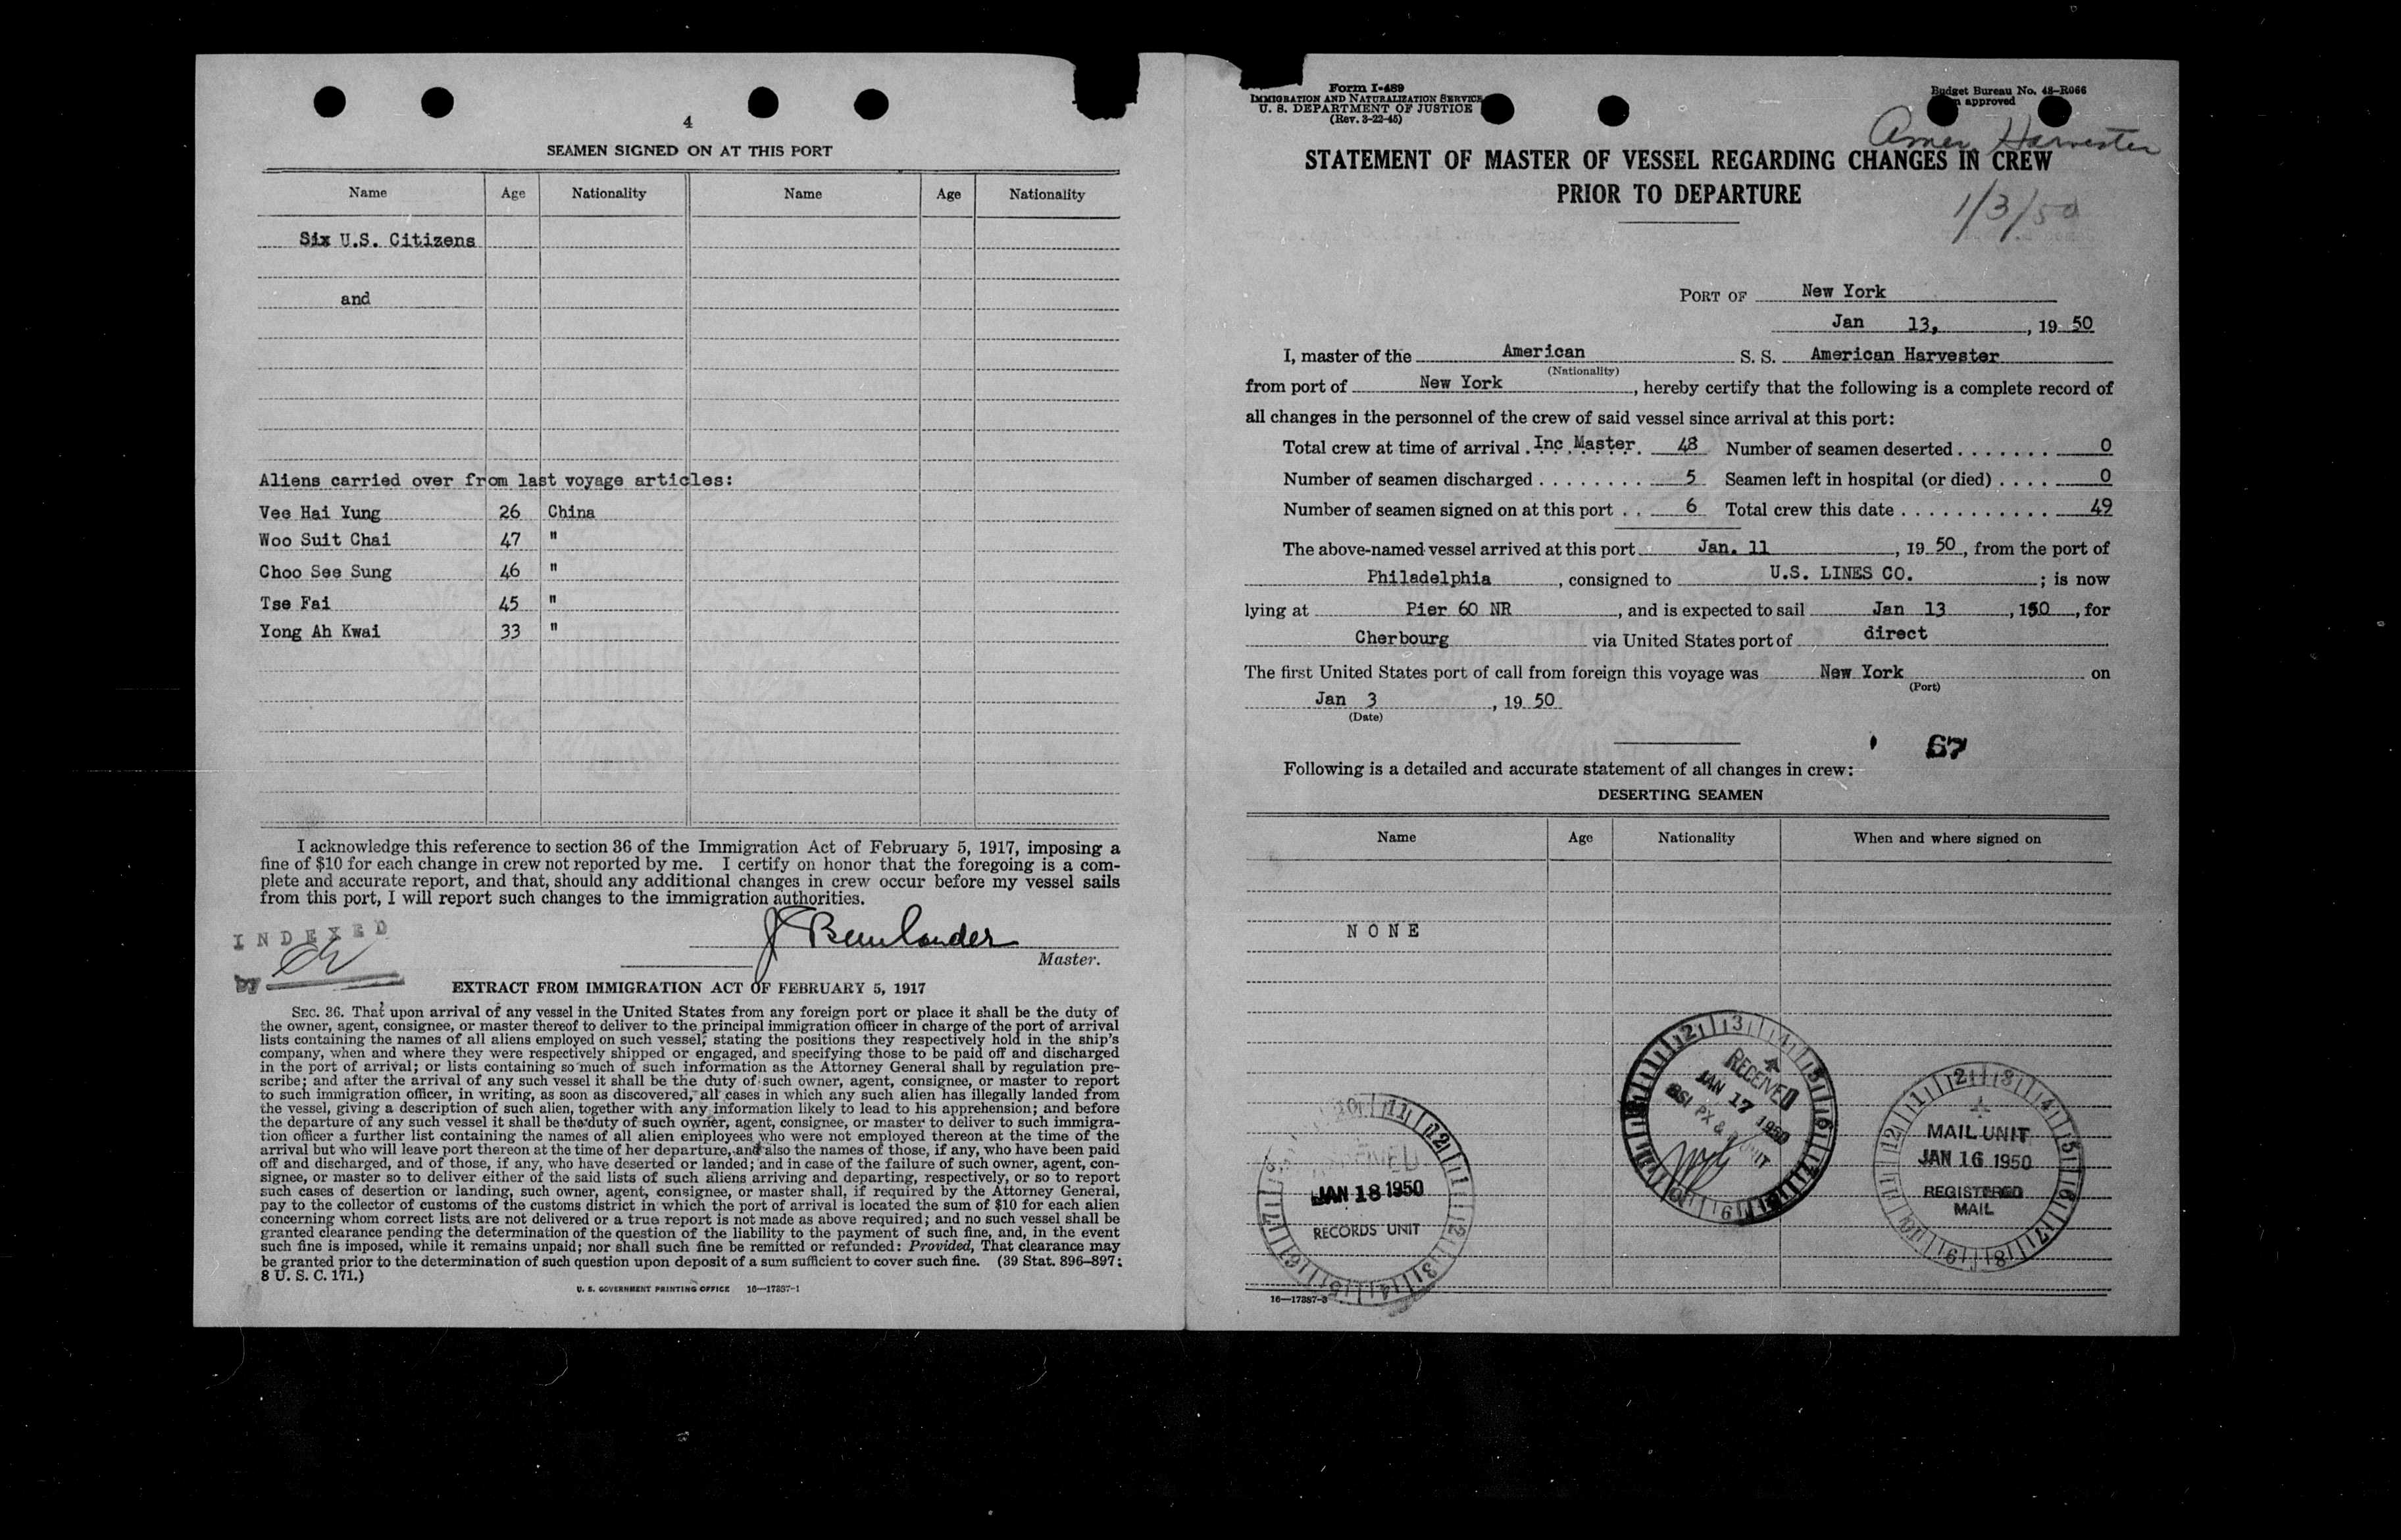 4
SEAMEN SIGNED ON AT THIS PORT
Name Age Nationality Name Age Nationality
Six U.S. Citizens
and
Aliens carried over from last voyage articles:
Vee Hai Yung 26 China
Woo Suit Chai 47 "
Choo See Sung 46 "
Tse Fai 45 "
Yong Ah Kwai 33 "
I acknowledge this reference to section 36 of the Immigration Act of February 5, 1917, imposing a
fine of $10 for each change in crew not reported by me. I certify on honor that the foregoing is a com-
plete and accurate report, and that, should any additional changes in crew occur before my vessel sails
from this port, I will report such changes to the immigration authorities.
INDEXED
by
Master.
EXTRACT FROM IMMIGRATION ACT OF FEBRUARY 5, 1917
SEC. 36. That upon arrival of any vessel in the United States from any foreign port or place it shall be the duty of
the owner, agent, consignee, or master thereof to deliver to the principal immigration officer in charge of the port of arrival
lists containing the names of all aliens employed on such vessel, stating the positions they respectively hold in the ship's
company, when and where they were respectively shipped or engaged, and specifying those to be paid off and discharged
in the port of arrival; or lists containing so much of such information as the Attorney General shall by regulation pre-
scribe; and after the arrival of any such vessel it shall be the duty of such owner, agent, consignee, or master to report
to such immigration officer, in writing, as soon as discovered, all cases in which any such alien has illegally landed from
the vessel, giving a description of such alien, together with any information likely to lead to his apprehension; and before
the departure of any such vessel it shall be the duty of such owner, agent, consignee, or master to deliver to such immigra-
tion officer a further list containing the names of all alien employees who were not employed thereon at the time of the
arrival but who will leave port thereon at the time of her departure, and also the names of those, if any, who have been paid
off and discharged, and of those, if any, who have deserted or landed; and in case of the failure of such owner, agent, con-
signee, or master so to deliver either of the said lists of such aliens arriving and departing, respectively, or so to report
such cases of desertion or landing, such owner, agent, consignee, or master shall, if required by the Attorney General,
pay to the collector of customs of the customs district in which the port of arrival is located the sum of $10 for each alien
concerning whom correct lists are not delivered or a true report is not made as above required; and no such vessel shall be
granted clearance pending the determination of the question of the liability to the payment of such fine, and, in the event
such fine is imposed, while it remains unpaid; nor shall such fine be remitted or refunded: Provided, That clearance may
be granted prior to the determination of such question upon deposit of a sum sufficient to cover such fine. (39 Stat. 896-897;
8 U. S. C. 171.)
U. S. GOVERNMENT PRINTING OFFICE 16—17387-1
Form I-489
IMMIGRATION AND NATURALIZATION SERVICE
U. S. DEPARTMENT OF JUSTICE
(Rev. 3-22-45)
Budget Bureau No. 43-R066
approved
Amer. Harvester
STATEMENT OF MASTER OF VESSEL REGARDING CHANGES IN CREW
PRIOR TO DEPARTURE
1/3/50
PORT OF New York
Jan 13, , 19 50
I, master of the American S. S. American Harvester
(Nationality)
from port of New York, hereby certify that the following is a complete record of
all changes in the personnel of the crew of said vessel since arrival at this port:
Total crew at time of arrival . Inc Master. 48 Number of seamen deserted . . . . . . . 0
Number of seamen discharged . . . . . . . . 5 Seamen left in hospital (or died) . . . . 0
Number of seamen signed on at this port . . 6 Total crew this date . . . . . . . . . . . . 49
The above-named vessel arrived at this port Jan. 11, 19 50, from the port of
Philadelphia, consigned to U.S. LINES CO.; is now
lying at Pier 60 NR, and is expected to sail Jan 13, 1950, for
Cherbourg via United States port of direct
The first United States port of call from foreign this voyage was New York on
(Port)
Jan 3, 19 50
(Date)
67
Following is a detailed and accurate statement of all changes in crew:
DESERTING SEAMEN
Name Age Nationality When and where signed on
NONE
RECEIVED
JAN 17 1950
RECEIVED
JAN 18 1950
RECORDS UNIT
MAIL UNIT
JAN 16 1950
REGISTERED
MAIL
16—17387-3